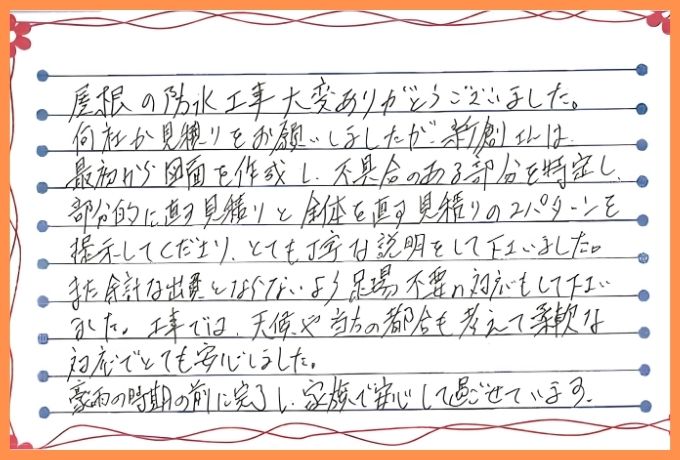 屋根の防水工事大変ありがとうございました。
何社か見積りをお願いしましたが、新創さんは、
最初から図面を作成し、不具合のある部分を特定し、
部分的に直す見積りと全体を直す見積りの2パターンを
提示してくださり、とても丁寧な説明をして下さいました。
また余計な出費とならないよう足場不要の対応もして下さい
ました。工事では、天候や当方の都合も考えて柔軟な
対応でとても安心しました。
豪雨の時期の前に完了し、家族で安心して過ごせています。